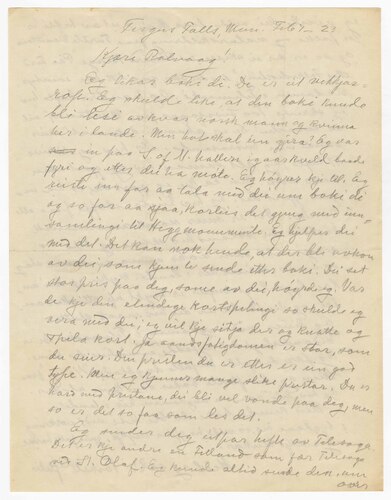 Fergus Falls, Minn. Feb 9 - 23
Kjære Rølvaag!
Eg likar boki di. Du er eit
Eg skulde like, at den boki kunde
bli lese av kvar norsk mann og kvinna
her i lande. Men kva skal ein gjera? Eg var
in paa S of N hallen igaarskveld baade
fyri og etter dei ha møte. Eg høyrer kje til. Eg
inn for aa tala med dei um boki di
og so for aa sjaa, korleis det gjeng med inn-
samlingi til Heggmonumente eg hjelper dei
med det. Det kan nok hende, at der bli nokon
av dei, som kjem te sende etter boki. Dei set
stor pris paa deg, some av dei, høyrde eg. Var
de kje den elendige kortspelingi so skulde eg
vera med dei, eg vil kje sitja der og knatte og
spela kort. Ja aandsfatigdomen er stor, som
du sier. Den presten du er etter er ein god
type. Men eg kjenner mange slike prestar. Du er
hard med prestane, dei bli vel vonde paa deg, men
so er det so faa som les det.
Eg sender deg eitpar hefte av Telesoga
Det er kje andre en Tellaug som fær Telesoga
ved St. Olaf. Eg kunde altid sende deg, um
over